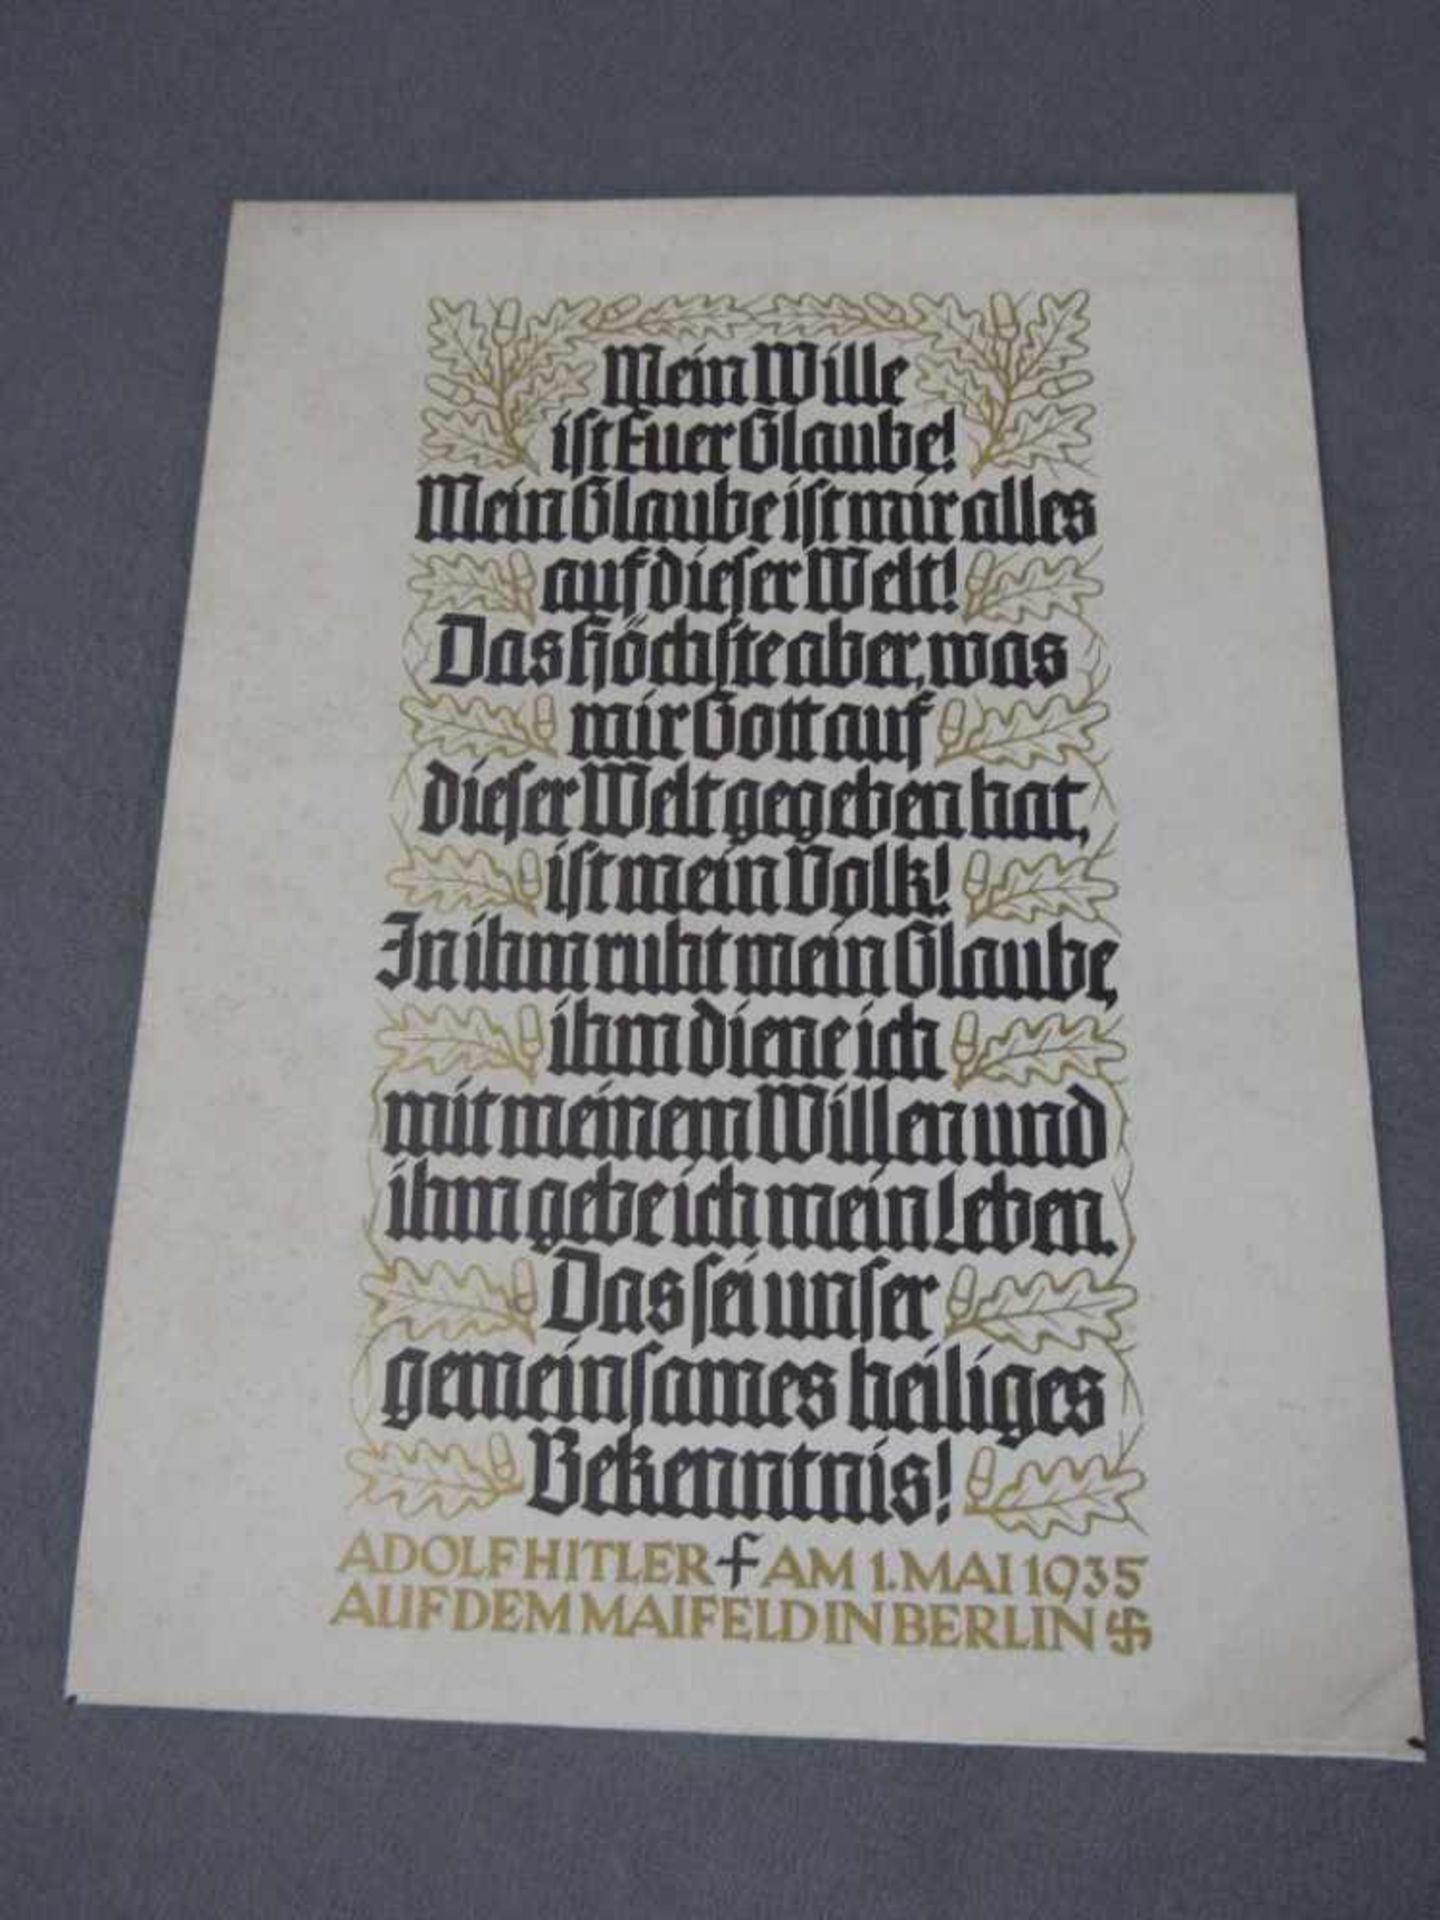 Mein Wille
ist Euer Glaube!
Mein Glaube ist mir alles
auf dieser Welt!
Das Höchste aber, was
mir Gott auf
dieser Welt gegeben hat,
ist mein Volk!
In ihm ruht mein Glaube,
ihm diene ich
mit meinem Willen und
ihm gebe ich mein Leben.
Das sei unser
gemeinsames heiliges
Bekenntnis!
ADOLF HITLER AM 1. MAI 1935
AUF DEM MAIFELD IN BERLIN